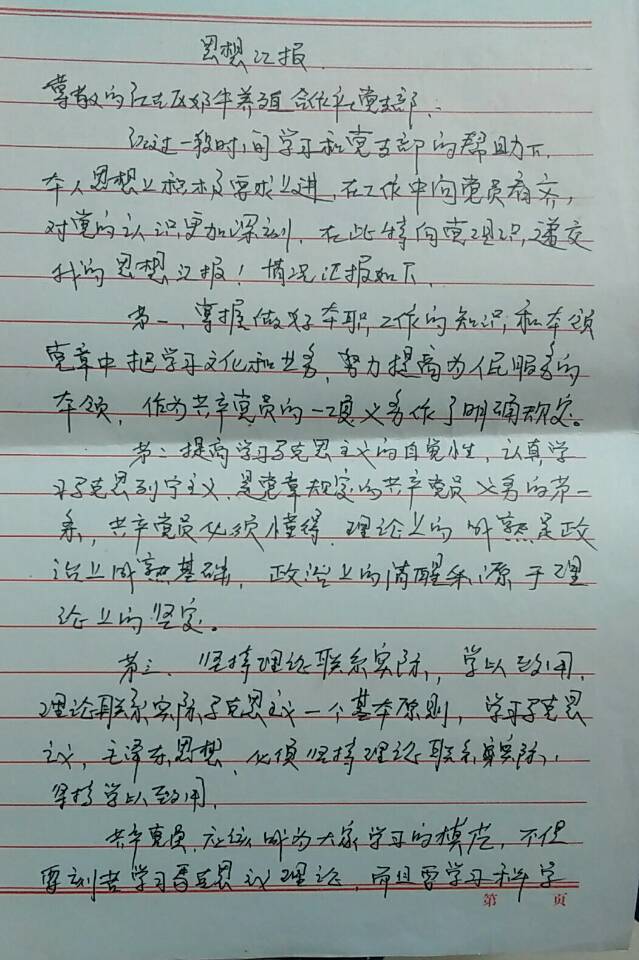 思想汇报
尊敬的红古区奶牛养殖合作社党支部：
经过一段时间学习和党支部的帮助下，
本人思想上积极要求上进，在工作中向党员看齐，
对党的认识更加深刻，在此特向党组织递交
我的思想汇报！情况汇报如下，
第一，掌握做好本职工作的知识，和本领
党章中把学习文化和业务，努力提高为人民服务的
本领，作为共产党员的一项义务作了明确规定。
第二提高学习马克思主义的自觉性，认真学
习马克思列宁主义，是党章规定的共产党员义务的第一
条，共产党员必须懂得，理论上的成熟是政
治上成熟基础，政治上的清醒来源于理
论上的坚定。
第三、坚持理论联系实际，学以致用，
理论联系实际马克思主义一个基本原则，学习马克思
主义，毛泽东思想，必须坚持理论联系实际，
坚持学以致用，
共产党员，应该成为大家学习的模范，不但
要刻苦学习马克思主义理论，而且要学习科学
第 页